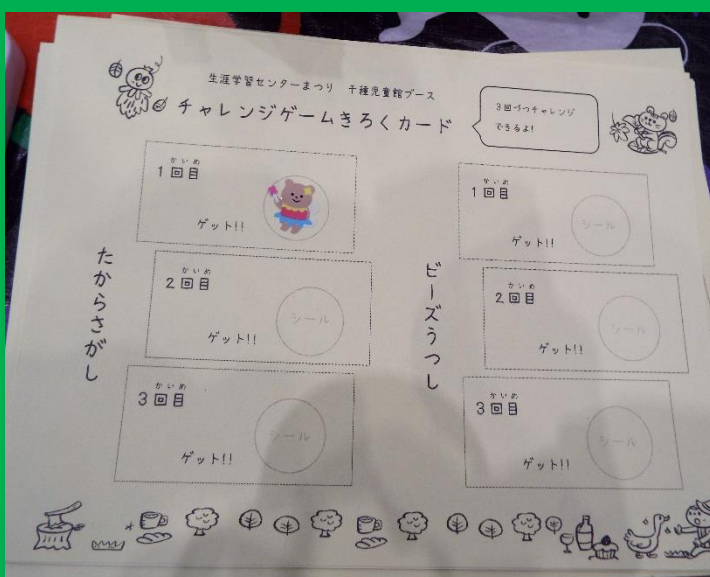 生涯学習センターまつり 千種児童館ブース
チャレンジゲームきろくカード
3回づつチャレンジ
できるよ!
たからさがし
かいめ
1回目
ゲット!!
かいめ
2回目
ゲット!!
シール
かいめ
3回目
ゲット!!
シール
ビーズうつし
かいめ
1回目
ゲット!!
シール
かいめ
2回目
ゲット!!
シール
かいめ
3回目
ゲット!!
シール